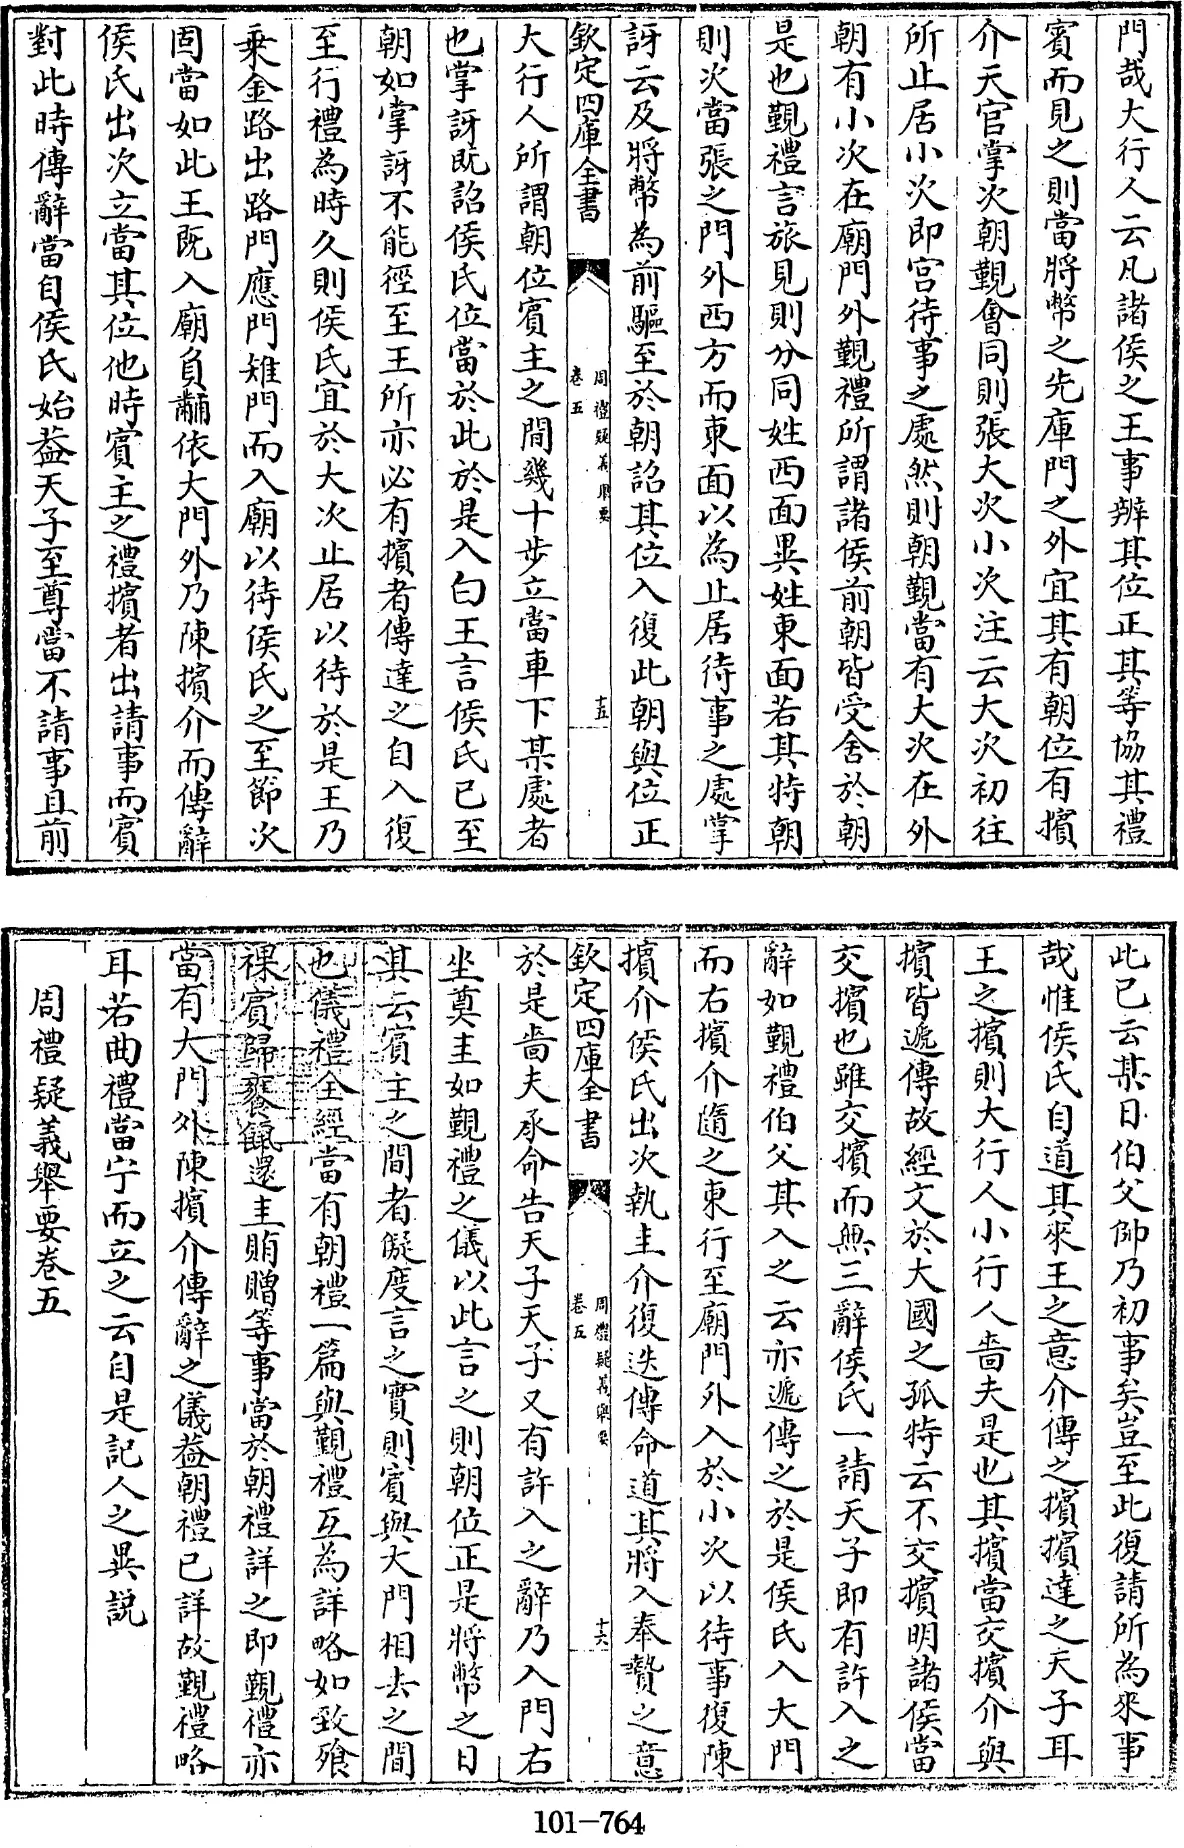 門哉大行人云凡諸侯之王事辨其位正其等協其禮
賓而見之則當將幣之先庫門之外宜其有朝位有擯
介天官掌次朝覲會同則張大次小次注云大次初往
所止居小次即宮待事之處然則朝覲當有大次在外
朝有小次在廟門外覲禮所謂諸侯前朝皆受舍於朝
是也覲禮言旅見則分同姓西面異姓東面若其特朝
則次當張之門外西方而東面以為止居待事之處掌
訝云及將幣為前驅至於朝詔其位入復此朝與位正
欽定四庫全書
周禮疑義舉要
卷五
十五
大行人所謂朝位賓主之間幾十步立當車下某處者
也掌訝既詔侯氏位當於此於是入白王言侯氏已至
朝如掌訝不能徑至王所亦必有擯者傳達之自入復
至行禮為時久則侯氏宜於大次止居以待於是王乃
乘金路出路門應門雉門而入廟以待侯氏之至節次
固當如此王既入廟負黼依大門外乃陳擯介而傳辭
侯氏出次立當其位他時賓主之禮擯者出請事而賓
對此時傳辭當自侯氏始葢天子至尊當不請事且前
此已云某日伯父帥乃初事矣豈至此復請所為來事
哉惟侯氏自道其來王之意介傳之擯擯達之天子耳
王之擯則大行人小行人嗇夫是也其擯當交擯介與
擯皆遞傳故經文於大國之孤特云不交擯明諸侯當
交擯也雖交擯而無三辭侯氏一請天子即有許入之
辭如覲禮伯父其入之云亦遞傳之於是侯氏入大門
而右擯介隨之東行至廟門外入於小次以待事復陳
擯介侯氏出次執圭介復迭傳命道其將入奉贄之意
欽定四庫全書
周禮疑義舉要
卷五
十六
於是嗇夫承命告天子天子又有許入之辭乃入門右
坐奠圭如覲禮之儀以此言之則朝位正是將幣之日
其云賓主之間者儗度言之實則賓與大門相去之間
也儀禮全經當有朝禮一篇與覲禮互為詳略如致飱
祼賓歸饔餼還圭賄贈等事當於朝禮詳之即覲禮亦
當有大門外陳擯介傳辭之儀葢朝禮已詳故覲禮略
耳若曲禮當宁而立之云自是記人之異說
周禮疑義舉要卷五
101-764